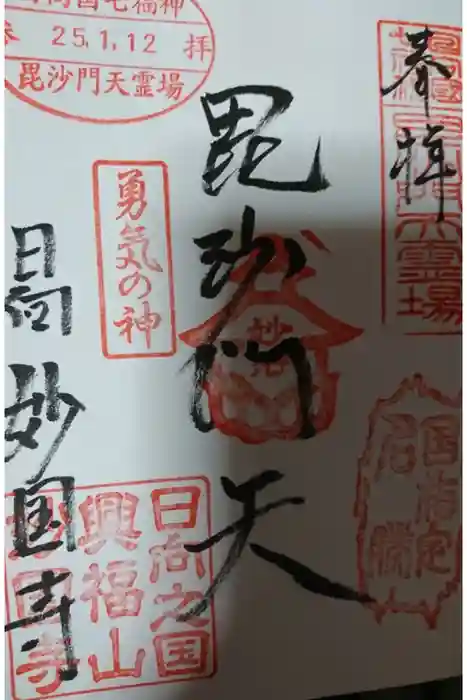 奉拝
毘沙門天霊場
国指定
名勝
毘沙門天
勇気の神
25.1.12
拝
毘沙門天霊場
日向妙国寺
日向之国
興福山
妙国寺